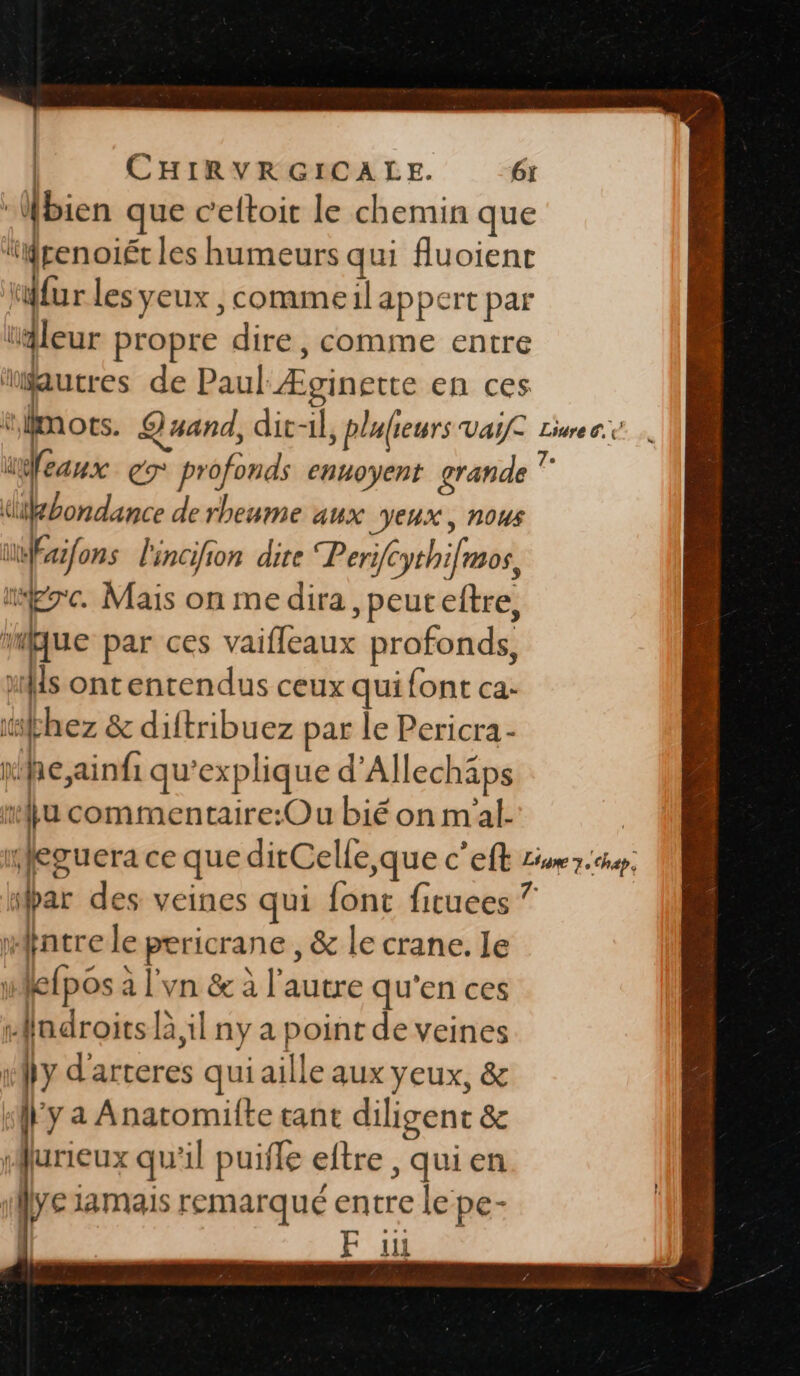 CHIRVRGICALE. 61
bien que c'eſtoit le chemin que
prenoiẽt les humeurs qui fluoient
ſur les yeux, comme il appert par
leur propre dire, comme entre
autres de Paul Æginette en ces
mots. Quand, dit-il, pluſieurs vaiſ- Liure 6. c.
ſeaux & profonds enuoyent grande 7.
abondance de rheume aux yeux, nous
faiſons l'inciſion dite Periſcythiſmos,
&c. Mais on me dira, peut eſtre,
que par ces vaiſſeaux profonds,
ils ont entendus ceux qui ſont ca-
chez & diſtribuez par le Pericra-
ne, ainſi qu'explique d'Allechãps
au commentaire: Ou biẽ on m'al-
leguera ce que dit Celſe, que c'eſt Liure 7. chap.
par des veines qui ſont ſituees 7
entre le pericrane, & le crane. Ie
reſpõs à l'vn & à l'autre qu'en ces
endroits là, il ny a point de veines
ny d'arteres qui aille aux yeux, &
n'y a Anatomiſte tant diligent &
curieux qu'il puiſſe eſtre, qui en
aye iamais remarqué entre le pe-
F iii